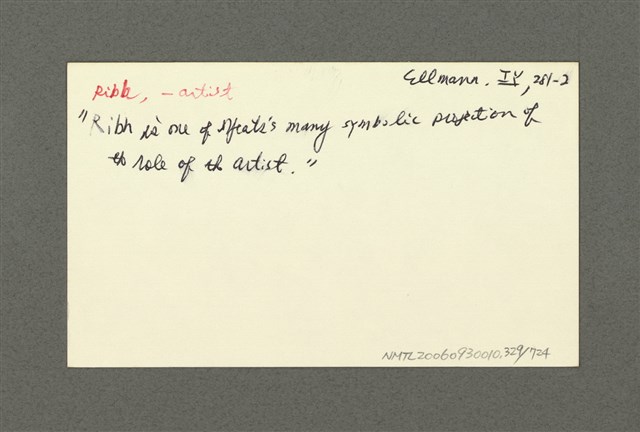 Ellmann. IY, 281-2
Ribh, – artist
"Ribh is one of Yeats's many symbolic projection of
th role of th artist."
NMTL20060930010.329/724